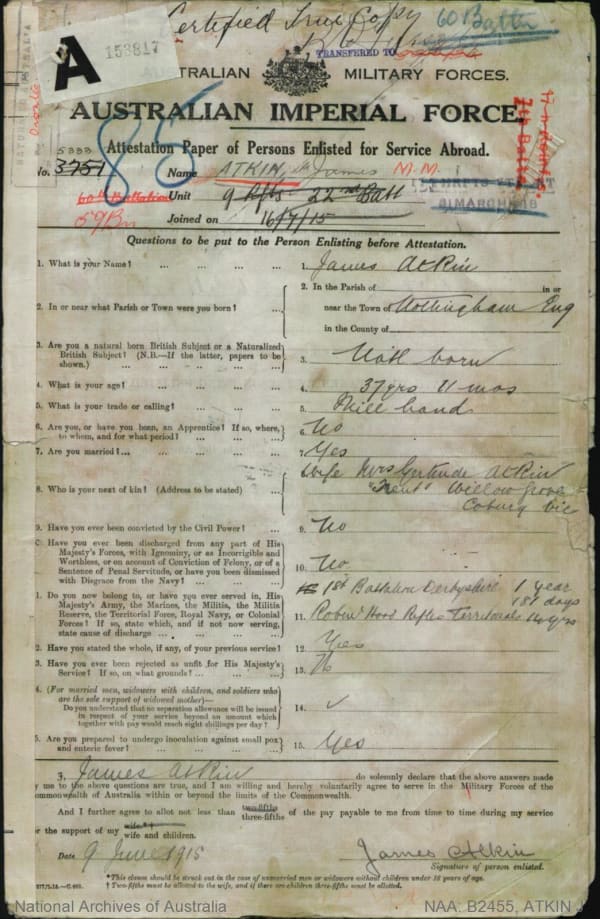 Certified True Copy
60 Battn
A 153817
TRANSFERED TO
AUSTRALIAN MILITARY FORCES.
AUSTRALIAN IMPERIAL FORCE.
Attestation Paper of Persons Enlisted for Service Abroad.
5333
No. 3751 Name ATKIN, James M.M.
85
60th Battalion Unit 9 Rfts 22nd Batt
59 Bn Joined on 16/7/15
Questions to be put to the Person Enlisting before Attestation.
1. What is your Name? ... ... ... ... 1. James Atkin
2. In or near what Parish or Town were you born? ... 2. In the Parish of in or
near the Town of Nottingham Eng
in the County of
3. Are you a natural born British Subject or a Naturalized
British Subject? (N.B.—If the latter, papers to be
shown.) ... ... ... ... 3. Natl born
4. What is your age? ... ... ... ... 4. 37 yrs 11 mos
5. What is your trade or calling? ... ... ... 5. Mill hand
6. Are you, or have you been, an Apprentice? If so, where,
to whom, and for what period? ... ... ... 6. No
7. Are you married? ... ... ... ... 7. Yes
8. Who is your next of kin? (Address to be stated) ... 8. Wife Mrs Gertrude Atkin
"Trent" Willow Grove
Coburg Vic
9. Have you ever been convicted by the Civil Power? ... 9. No
Have you ever been discharged from any part of His
Majesty's Forces, with Ignominy, or as Incorrigible and
Worthless, or on account of Conviction of Felony, or of a
Sentence of Penal Servitude, or have you been dismissed
with Disgrace from the Navy? ... ... ... 10. No
1. Do you now belong to, or have you ever served in, His
Majesty's Army, the Marines, the Militia, the Militia
Reserve, the Territorial Force, Royal Navy, or Colonial
Forces? If so, state which, and if not now serving,
state cause of discharge ... ... ...
1st Battalion Derbyshire 1 year
181 days
11. Robin Hood Rifles Territorials 14 yrs
2. Have you stated the whole, if any, of your previous service? 12. Yes
3. Have you ever been rejected as unfit for His Majesty's
Service? If so, on what grounds? ... ... 13. No
4. (For married men, widowers with children, and soldiers who
are the sole support of widowed mother)—
Do you understand that no separation allowance will be issued
in respect of your service beyond an amount which
together with pay would reach eight shillings per day? 14. ✓
5. Are you prepared to undergo inoculation against small pox
and enteric fever? ... ... ... ... 15. Yes
I, James Atkin do solemnly declare that the above answers made
by me to the above questions are true, and I am willing and hereby voluntarily agree to serve in the Military Forces of the
Commonwealth of Australia within or beyond the limits of the Commonwealth.
And I further agree to allot not less than two-fifths
three-fifths of the pay payable to me from time to time during my service
for the support of my wife*†
wife and children.
Date 9 June 1915 James Atkin
Signature of person enlisted.
*This clause should be struck out in the case of unmarried men or widowers without children under 18 years of age.
†Two-fifths must be allotted to the wife, and if there are children three-fifths must be allotted.
National Archives of Australia NAA: B2455, ATKIN J